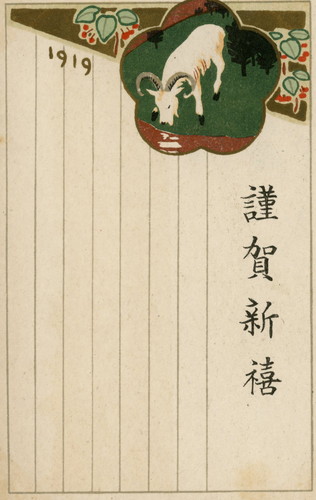 1919
謹賀新禧